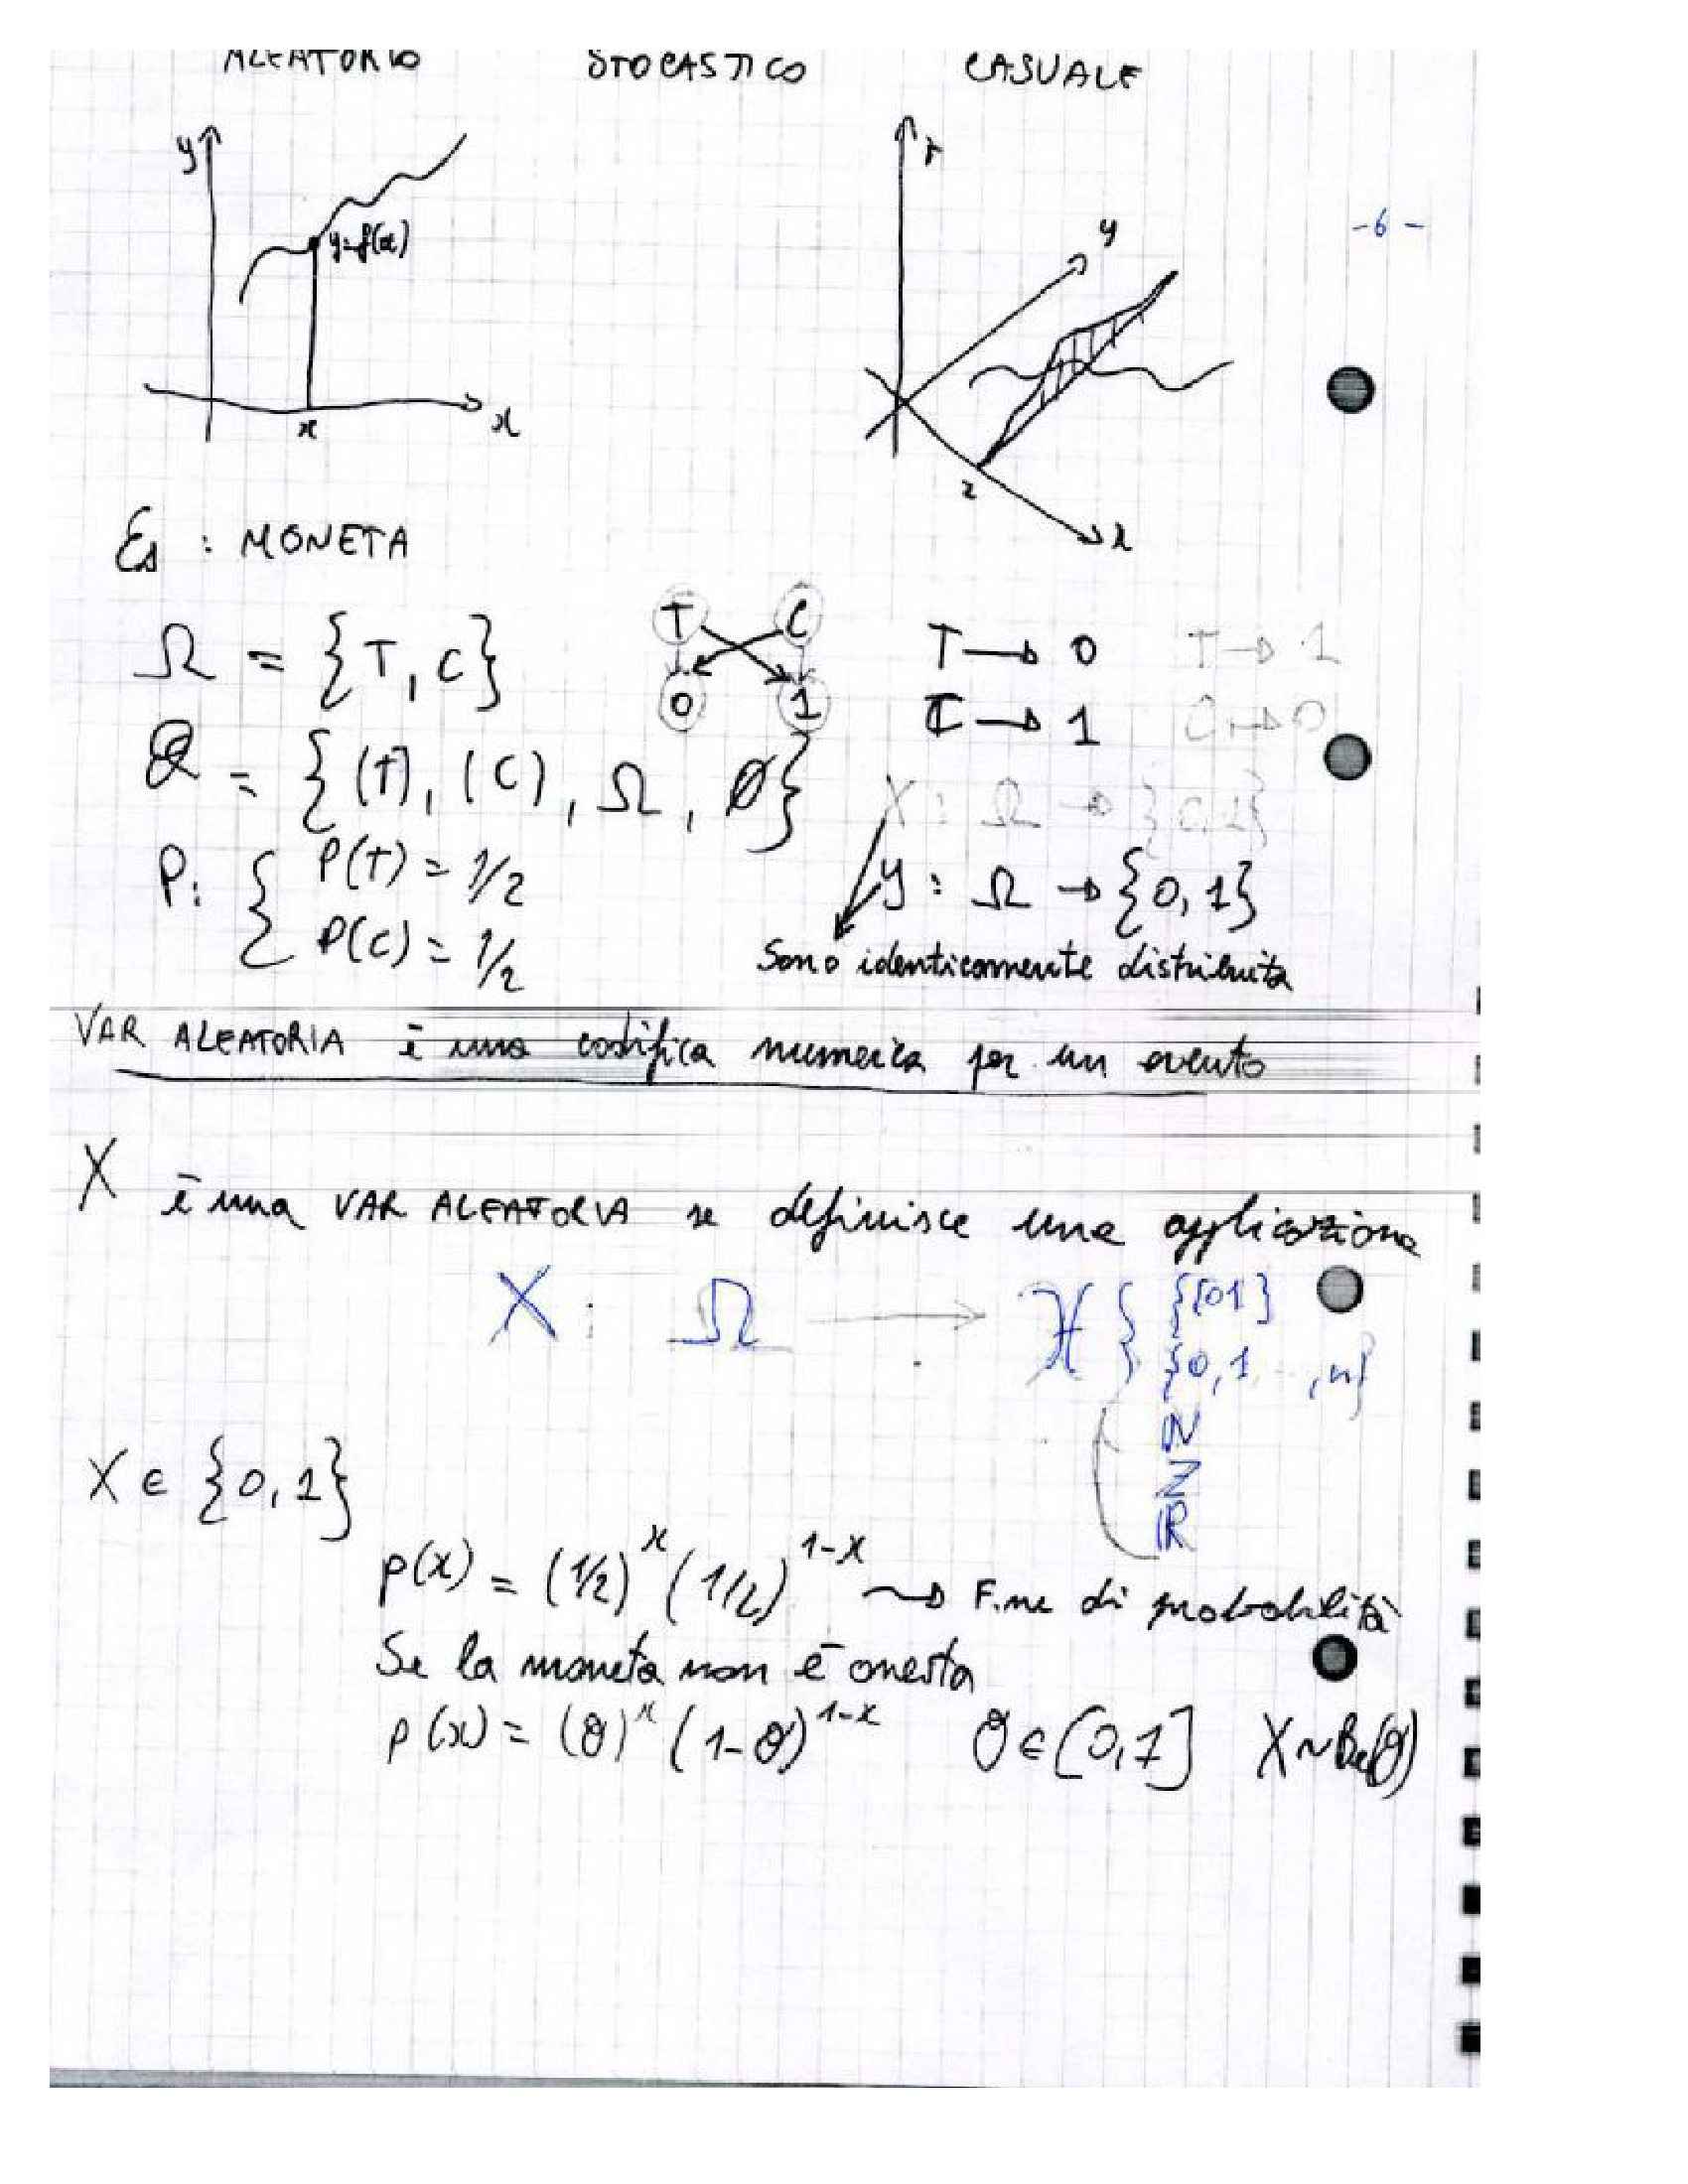 ALEATORIO STOCASTICO CASUALE
y
y=f(x)
x x
y
z
x
-6-
Es : MONETA
Ω = {T, C}
T C
0 1
T → 0 T → 1
C → 1 C → 0
= {(T), (C), Ω, Ø}
X : Ω → {0,1}
P: { P(T) = 1/2
P(C) = 1/2
Y : Ω → {0,1}
Sono identicamente distribuita
VAR ALEATORIA è una codifica numerica per un evento
X è una VAR ALEATORIA se definisce una applicazione
X : Ω → {[01]
{0,1 ..., n}
N
Z
R
X ∈ {0,1}
p(x) = (1/2)^x (1/2)^1-x → F.ne di probabilità
Se la moneta non è onesta
p(x) = (θ)^x (1-θ)^1-x θ ∈ [0,1] X ~ Be(θ)